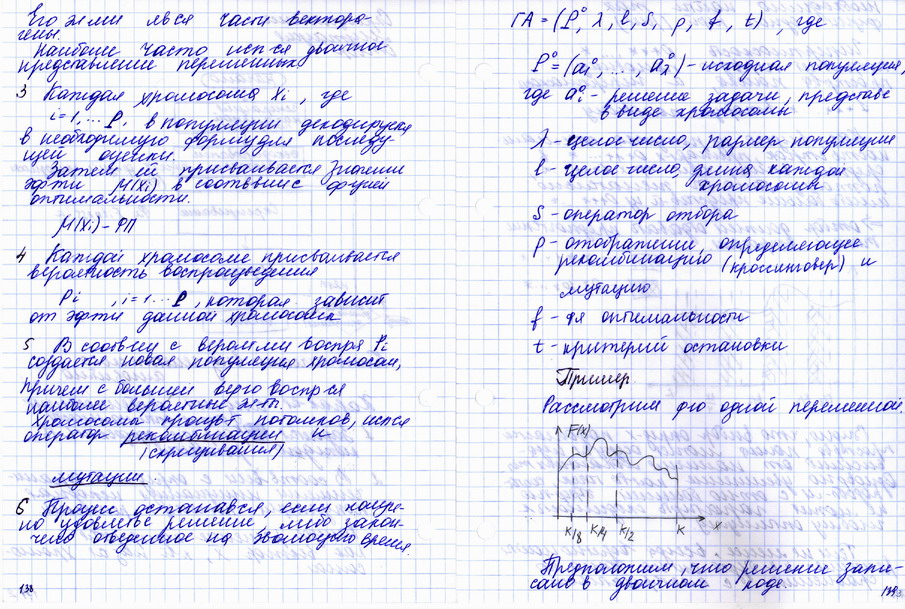 Его эл-ми явл-ся части вектора-
гены.
Наиболее часто исп-ся двоичное
представление переменных
3 Каждая хромосома Xi, где
i=1,... P, в популяции декодируется
в необходимую форму для последу-
щей оценки.
Затем ей присваивается значении
эфф-ти M(Xi) в соотв-вии с ф-цией
оптимальности.
M(Xi) - ФП
4 Каждой хромосоме присваивается
вероятность воспроизведения
Pi , i=1...P, которая зависит
от эфф-ти данной хромосомы
5 В соотв-ии с вероят-ми воспр-я Pi
создается новая популяция хромосом,
Причем с большей вер-ю воспр-ся
наиболее вероятные эл-ты.
Хромосомы произв-т потомков, исп-ся
оператор рекомбинации и
(скрещивания)
мутации.
6 Процесс останавл-ся, если найде-
но удовл-е решение, либо закон-
чено отведенное на эволюцию время.
138
ГА = (P⁰, λ, l, S, ρ, f, t), где
P⁰ = (a₁⁰, ..., a_λ⁰) - исходная популяция,
где aᵢ⁰ - решение задачи, представ-е
в виде хромосомы
λ - целое число, размер популяции
l - целое число, длина каждой
хромосомы
S - оператор отбора
ρ - отображение, определяющее
рекомбинацию (кроссинговер) и
мутацию
f - ф-я оптимальности
t - критерий остановки
Пример
Рассмотрим ф-ю одной переменной.
F(x)
K/8 K/4 K/2 K x
Предположим, что решение запи-
сано в двоичном коде
139